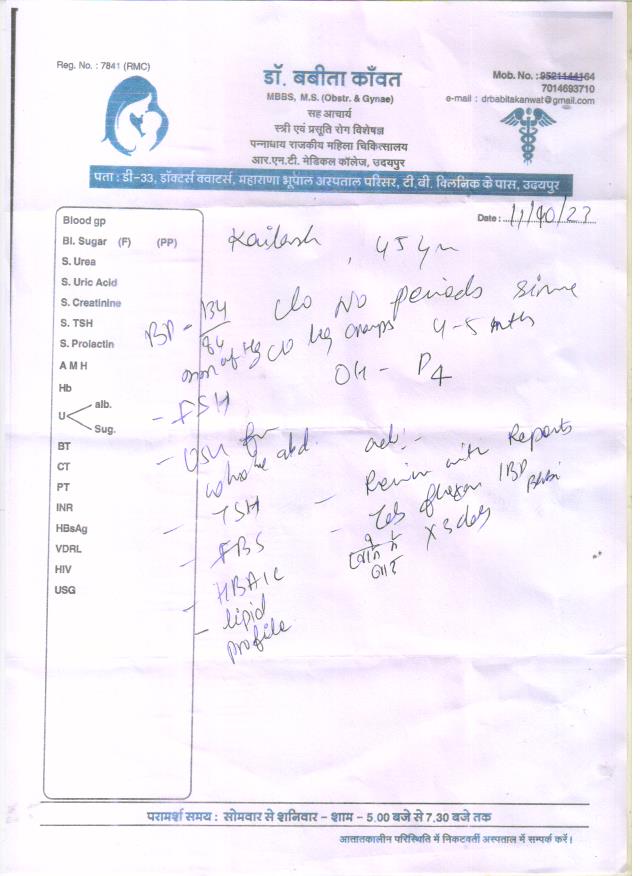 Reg. No. : 7841 (RMC)
डॉ. बबीता काँवत
MBBS, M.S. (Obstr. & Gynae)
सह आचार्य
स्त्री एवं प्रसूति रोग विशेषज्ञ
पन्नाधाय राजकीय महिला चिकित्सालय
आर.एन.टी. मेडिकल कॉलेज, उदयपुर
Mob. No. : 9521144164
7014693710
e-mail : drbabitakanwat@gmail.com
पता : डी-33, डॉक्टर्स क्वाटर्स, महाराणा भूपाल अस्पताल परिसर, टी.बी. क्लिनिक के पास, उदयपुर
Date : 11/10/23
Blood gp
Bl. Sugar (F) (PP)
S. Urea
S. Uric Acid
S. Creatinine
S. TSH
S. Prolactin
A M H
Hb
U alb.
Sug.
BT
CT
PT
INR
HBsAg
VDRL
HIV
USG
Kailash, 45 yr
C/o No periods since
4-5 mths
BP - 134/84 mm of Hg
C/O leg cramps
OH - P4
- FSH
- USG for
whole abd.
- TSH
- FBS
- HBA1C
- lipid
profile
adv:-
- Review with Reports
- Tab
x 3 days
परामर्श समय : सोमवार से शनिवार - शाम - 5.00 बजे से 7.30 बजे तक
आत्तातकालीन परिस्थिति में निकटवर्ती अस्पताल में सम्पर्क करें।